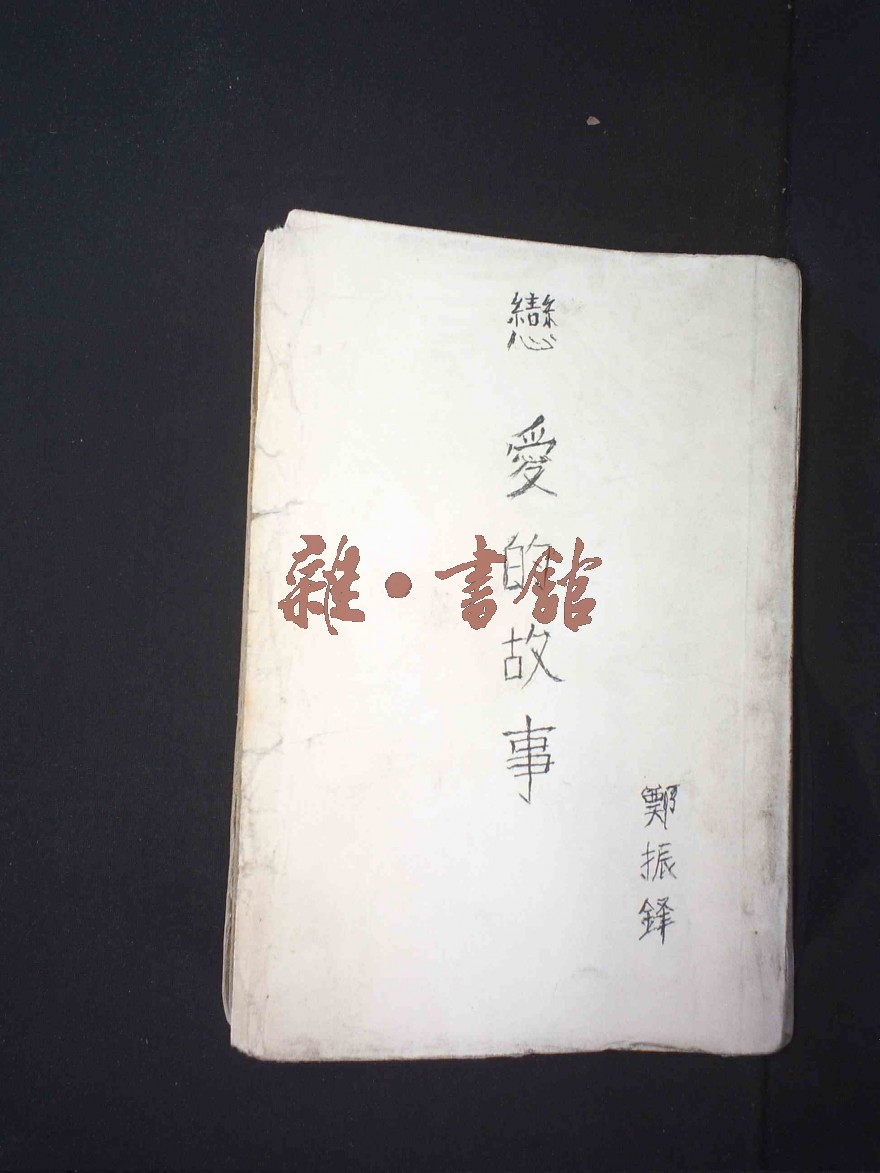 戀愛的故事
鄭振鋒
雜·書館